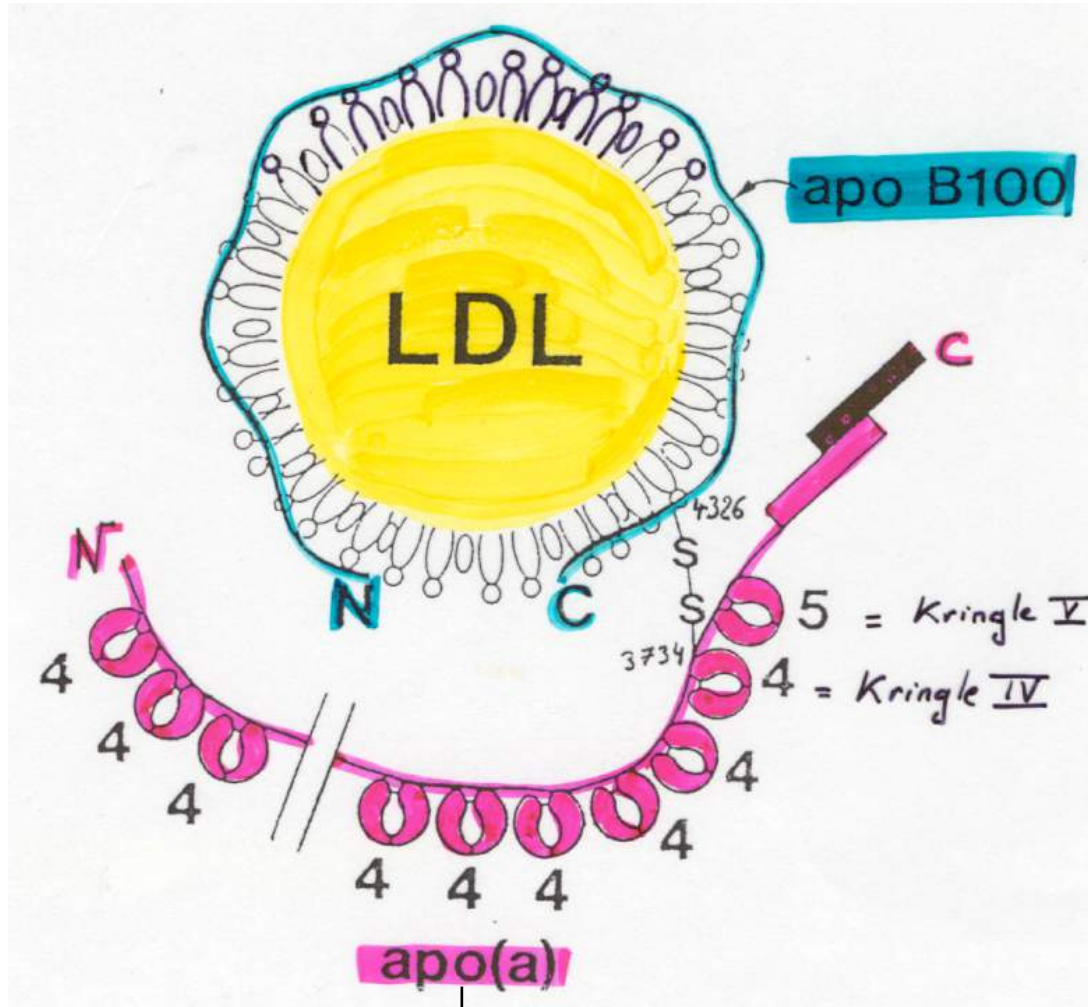 apo B100
LDL
C
4326
S
N
S
N
C
5 = Kringle V
3734
4 = Kringle IV
4
4
4
4
4
4
4
4
apo(a)